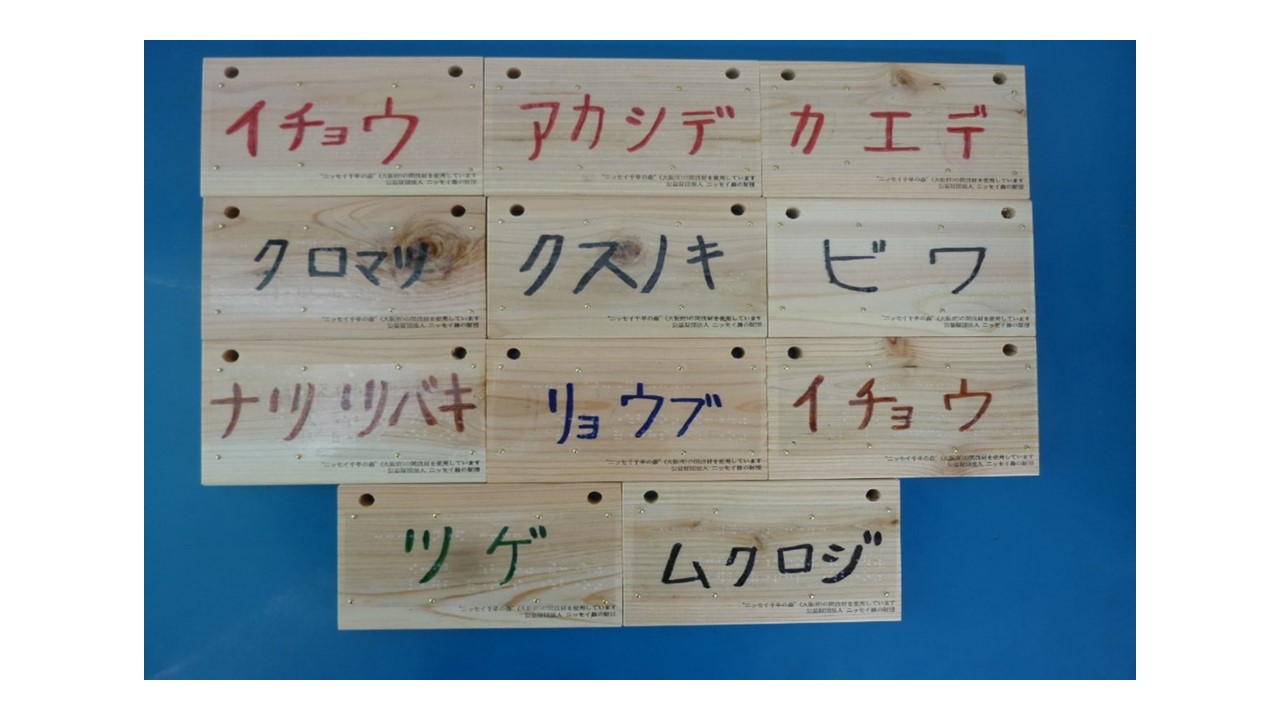 イチョウ
"ニッセイ千年の森"(大阪府)の間伐材を使用しています
公益財団法人 ニッセイ緑の財団
アカシデ
"ニッセイ千年の森"(大阪府)の間伐材を使用しています
公益財団法人 ニッセイ緑の財団
カエデ
"ニッセイ千年の森"(大阪府)の間伐材を使用しています
公益財団法人 ニッセイ緑の財団
クロマツ
"ニッセイ千年の森"(大阪府)の間伐材を使用しています
公益財団法人 ニッセイ緑の財団
クスノキ
"ニッセイ千年の森"(大阪府)の間伐材を使用しています
公益財団法人 ニッセイ緑の財団
ビワ
"ニッセイ千年の森"(大阪府)の間伐材を使用しています
公益財団法人 ニッセイ緑の財団
ナツツバキ
"ニッセイ千年の森"(大阪府)の間伐材を使用しています
公益財団法人 ニッセイ緑の財団
リョウブ
"ニッセイ千年の森"(大阪府)の間伐材を使用しています
公益財団法人 ニッセイ緑の財団
イチョウ
"ニッセイ千年の森"(大阪府)の間伐材を使用しています
公益財団法人 ニッセイ緑の財団
ツゲ
"ニッセイ千年の森"(大阪府)の間伐材を使用しています
公益財団法人 ニッセイ緑の財団
ムクロジ
"ニッセイ千年の森"(大阪府)の間伐材を使用しています
公益財団法人 ニッセイ緑の財団